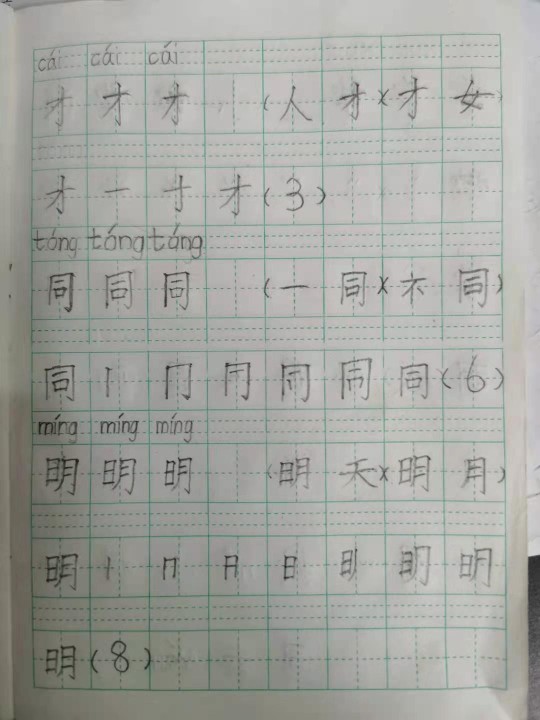 cái cái cái
才 才 才 (人 才)(才 女)
才 一 十 才 (3)
tóng tóng tóng
同 同 同 (一 同)(不 同)
同 丨 冂 冂 同 同 同 (6)
míng míng míng
明 明 明 (明 天)(明 月)
明 丨 冂 日 日 明 明
明 (8)